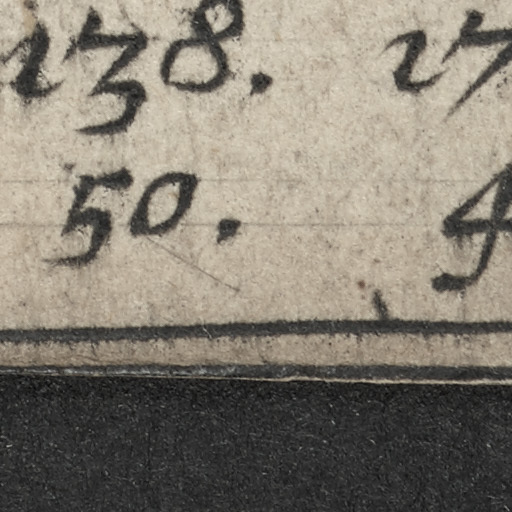 138. 17
50. 4